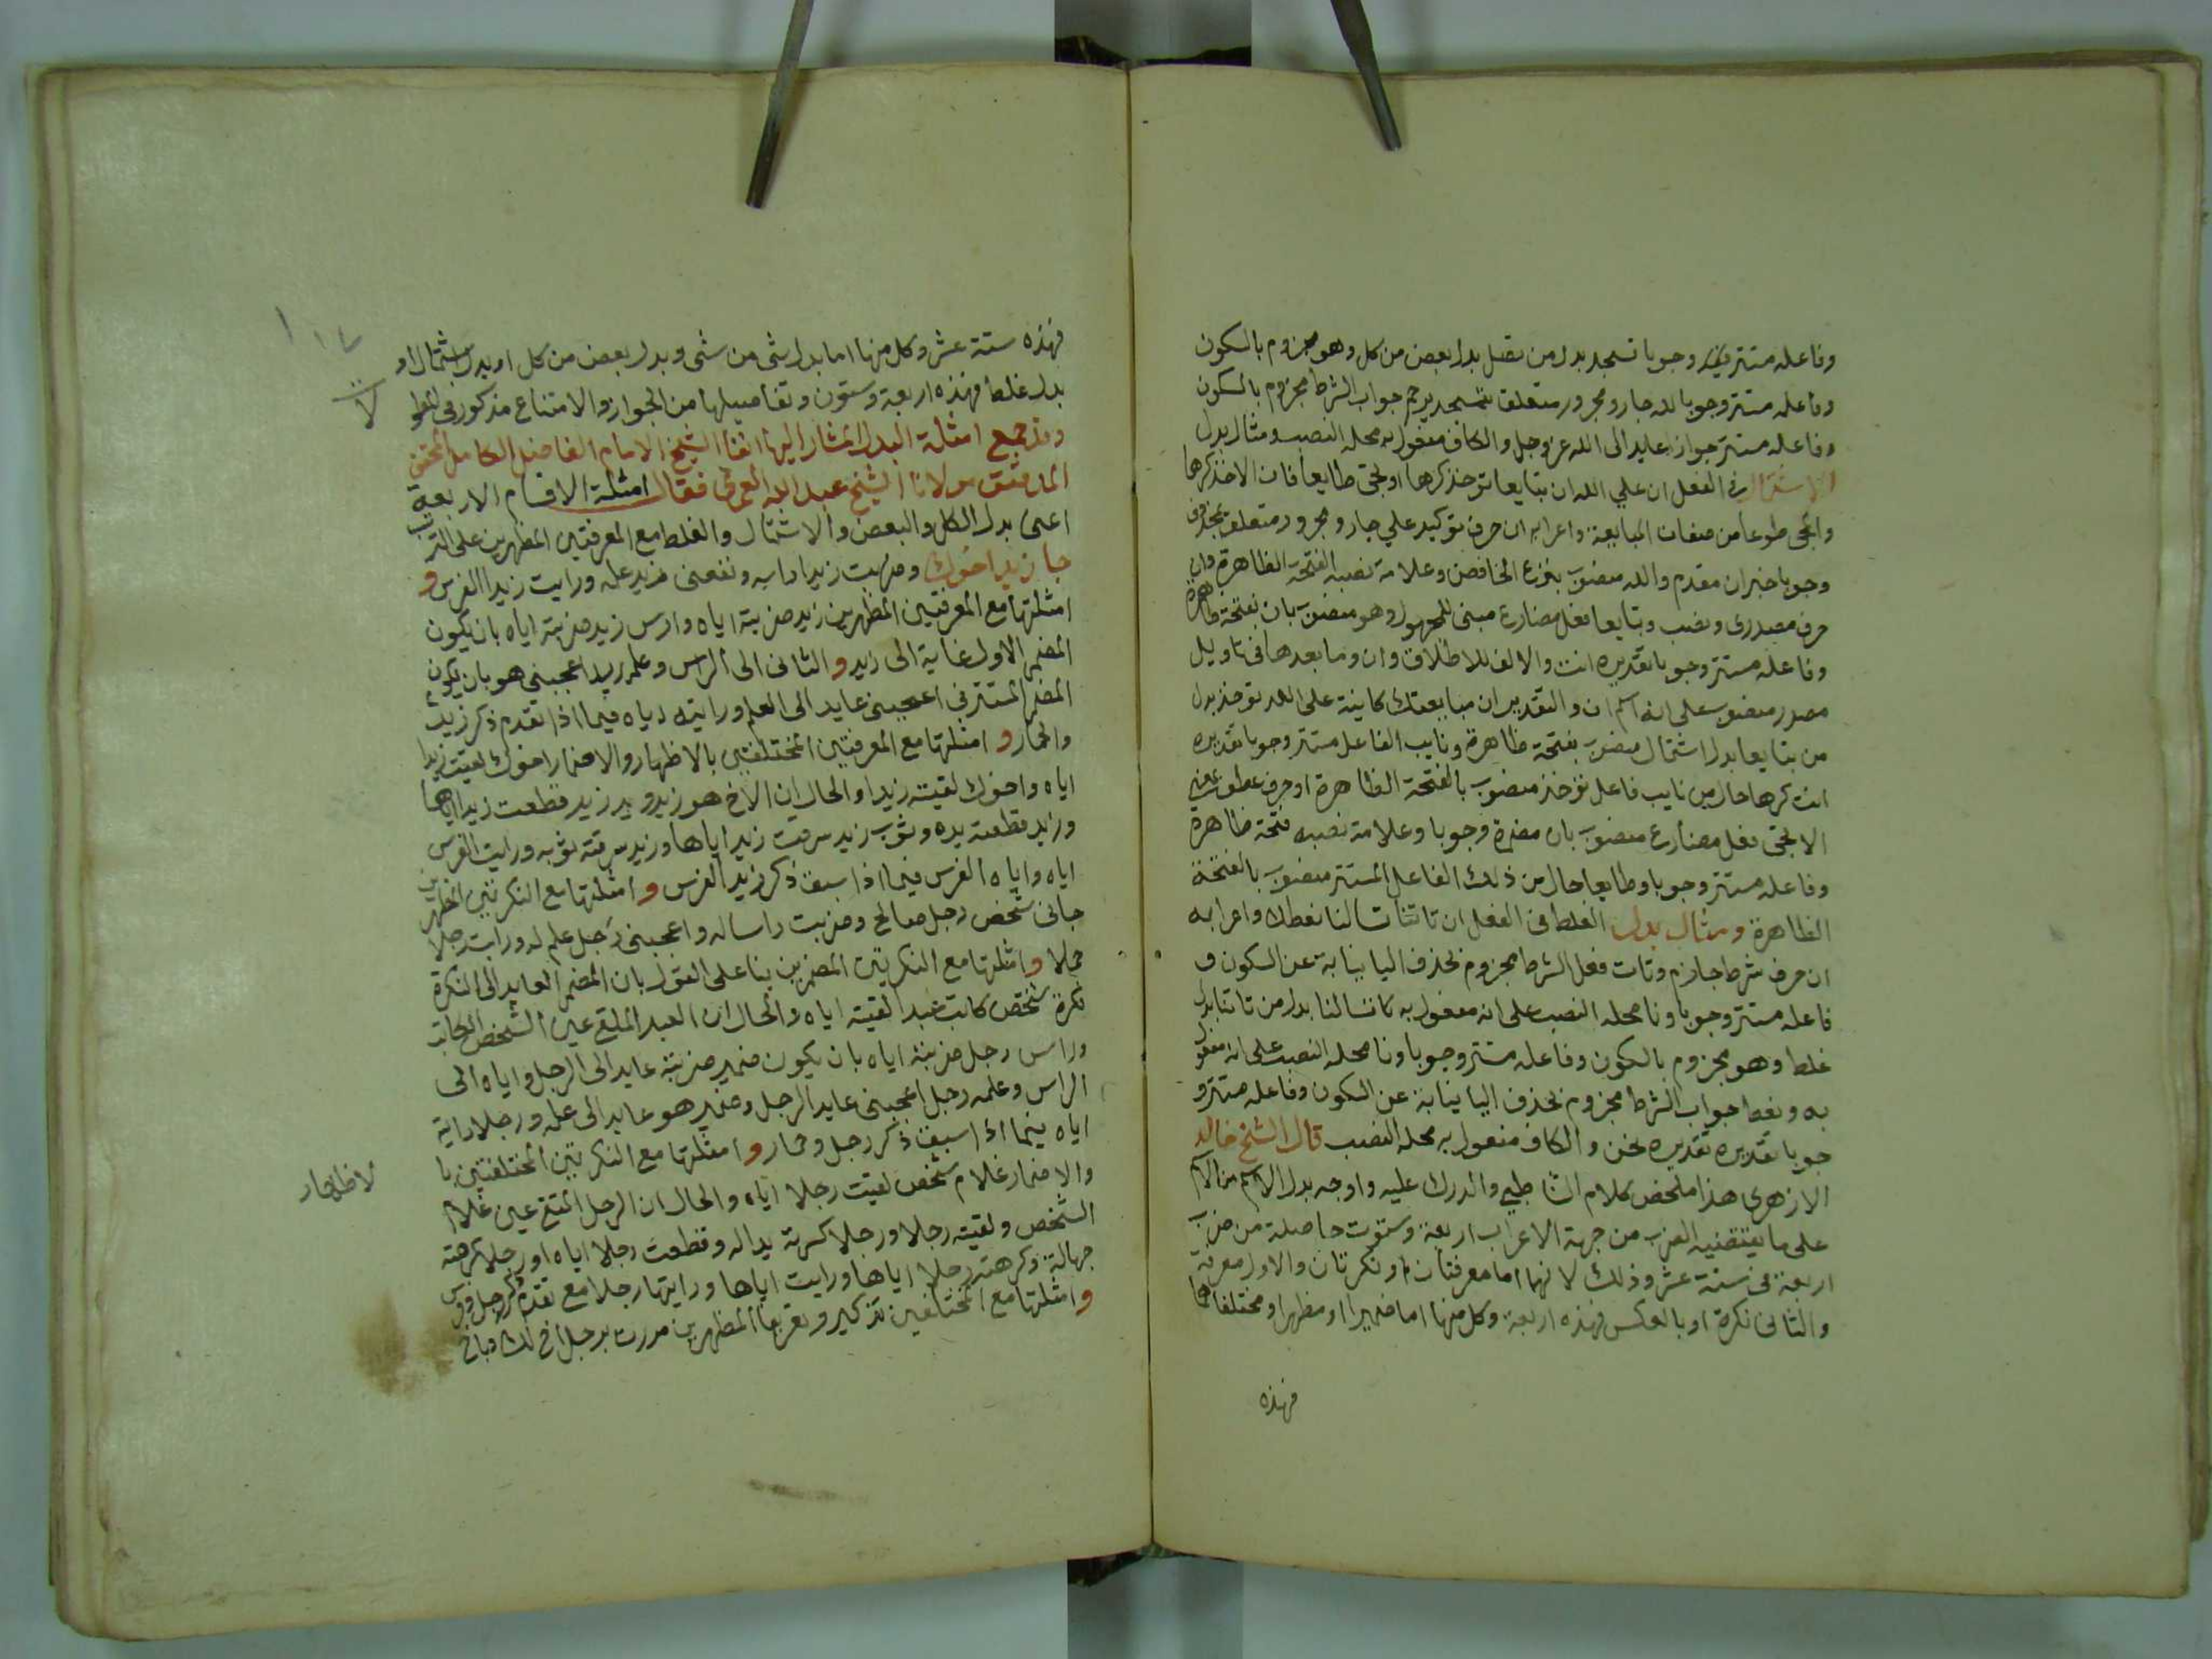 وفاعله مستتر فيه وجوبا تسجد بدل من تصل بدل بعض من كل وهو مجزوم بالسكون
وفاعله مستتر وجوبا لله جار ومجرور متعلق بتسجد يرحم جواب الشرط مجزوم بالسكون
وفاعله مستتر جوازا عايد الى الله عز وجل والكاف مفعول به محله النصب ومثال بدل
الاشتمال في الفعل ان علي الله ان تبايعا توخذ كرها او تجى طايعا فان الاخذ كرها
والمجى طوعا من صفات المبايعة واعرابه ان حرف توكيد علي جار ومجرور متعلق بمحذوف
وجوبا خبر ان مقدم والله منصوب بنزع الخافض وعلامة نصبه الفتحة الظاهرة وان
حرف مصدرى ونصب وتبايعا فعل مضارع مبنى للمجهول وهو منصوب بان بفتحة ظاهرة
وفاعله مستتر وجوبا تقديره انت والالف للاطلاق وان وما بعدها فى تاويل
مصدر منصوب على انه اسم ان والتقدير ان مبايعتك كاينة على الله توخذ بدل
من تبايعا بدل اشتمال منصوب بفتحة ظاهرة ونايب الفاعل مستتر وجوبا تقديره
انت كرها حال من نايب فاعل توخذ منصوب بالفتحة الظاهرة او حرف عطف بمعنى
الا تجئ فعل مضارع منصوب بان مضمرة وجوبا وعلامة نصبه فتحة ظاهرة
وفاعله مستتر وجوبا وطايعا حال من ذلك الفاعل المستتر منصوب بالفتحة
الظاهرة ومثال بدل الغلط فى الفعل ان تاتنا تسالنا نعطك واعرابه
ان حرف شرط جازم وتات فعل الشرط مجزوم بحذف اليا نيابة عن السكون و
فاعله مستتر وجوبا ونا محله النصب على انه مفعول به تسالنا بدل من تاتنا بدل
غلط وهو مجزوم بالسكون وفاعله مستتر وجوبا ونا محله النصب على انه مفعول
به ونعط جواب الشرط مجزوم بحذف اليا نيابة عن السكون وفاعله مستتر و
جوبا تقديره تقديره نحن والكاف مفعول به محله النصب قال الشيخ خالد
الازهرى هذا ملخص كلام الشاطبي والدرك عليه واوجه بدل الاسم من الاسم
على ما يقتضيه الضرب من جهة الاعراب اربعة وستوت حاصلة من ضرب
اربعة فى ستة عشر وذلك لانهما اما معرفتان او نكرتان والاول معرفة
والثانى نكرة او بالعكس فهذه اربعة وكل منها اما ضميرا او مظهرا او مختلفا
فهذه
فهذه ستة عشر وكل منها اما بدل شى من شى وبدل بعض من كل او بدل اشتمال او
بدل غلط فهذه اربعة وستون وتفاصيلها من الجواز والامتناع مذكور فى
وقد جمع امثلة البدل المشار اليها انفا الشيخ الامام الفاضل الكامل المحقق
المدقق مولانا الشيخ عبد الله فقال امثلة الاقسام الاربعة
اعنى بدل الكل والبعض والاشتمال والغلط مع المعرفتين المظهرين على الترتيب
جا زيد اخوك وضربت زيدا راسه ونفعنى زيد علمه ورايت زيدا الفرس و
امثلتها مع المعرفتين المظهرين زيد ضربته اياه وراس زيد ضربته اياه بان يكون
المضمر الاول عايد الى زيد والثانى الى الراس وعلم زيد اعجبنى هو بان يكون
المضمر المستتر فى اعجبنى عايد الى العلم ورايته اياه فيما اذا تقدم ذكر زيد
والحمار وامثلتها مع المعرفتين المختلفتين بالاظهار والاضمار اخوك لقيت زيدا
اياه واخوك لقيته زيدا والحال ان الاخ هو زيد ويد زيد قطعت زيدا اياها
وزيد قطعته يده وثوب زيد سرقت زيد اياها وزيد سرقته ثوبه ورايت الفرس
اياه واياه الفرس فيما اذا سبق ذكر زيد الفرس وامثلتها مع النكرتين المظهرين
جانى شخص رجل صالح وضربت راسا له واعجبنى رجل علم له ورايت رجلا
حمارا وامثلتها مع النكرتين المضمرين بنا على القول بان المضمر العايد الى النكرة
نكرة شخص كاتب عبد لقيته اياه والحال ان العبد الملقى عين الشخص الكاتب
وراس رجل ضربته اياه بان يكون ضمير ضربته عايد الى الرجل واياه الى
الراس وعلمه رجل اعجبنى عايد الرجل وضمير هو عايد الى علمه ورجلا راية
اياه فيما اذا سبق ذكر رجل وحمار وامثلتها مع النكرتين المختلفتين با
لاظهار
والاضمار غلام شخص لقيت رجلا اياه والحال ان الرجل الملقى عين غلام
الشخص ولقيته رجلا ورجلا كسرته يدا له وقطعت رجلا اياه او رجلا كرهته
جهالة وكرهته رجلا اياها ورايت اياها ورايتها رجلا مع تقدم ذكر رجل وفرس
وامثلتها مع المختلفين تذكير وتعريفا المظهرين مررت برجل اخ لك